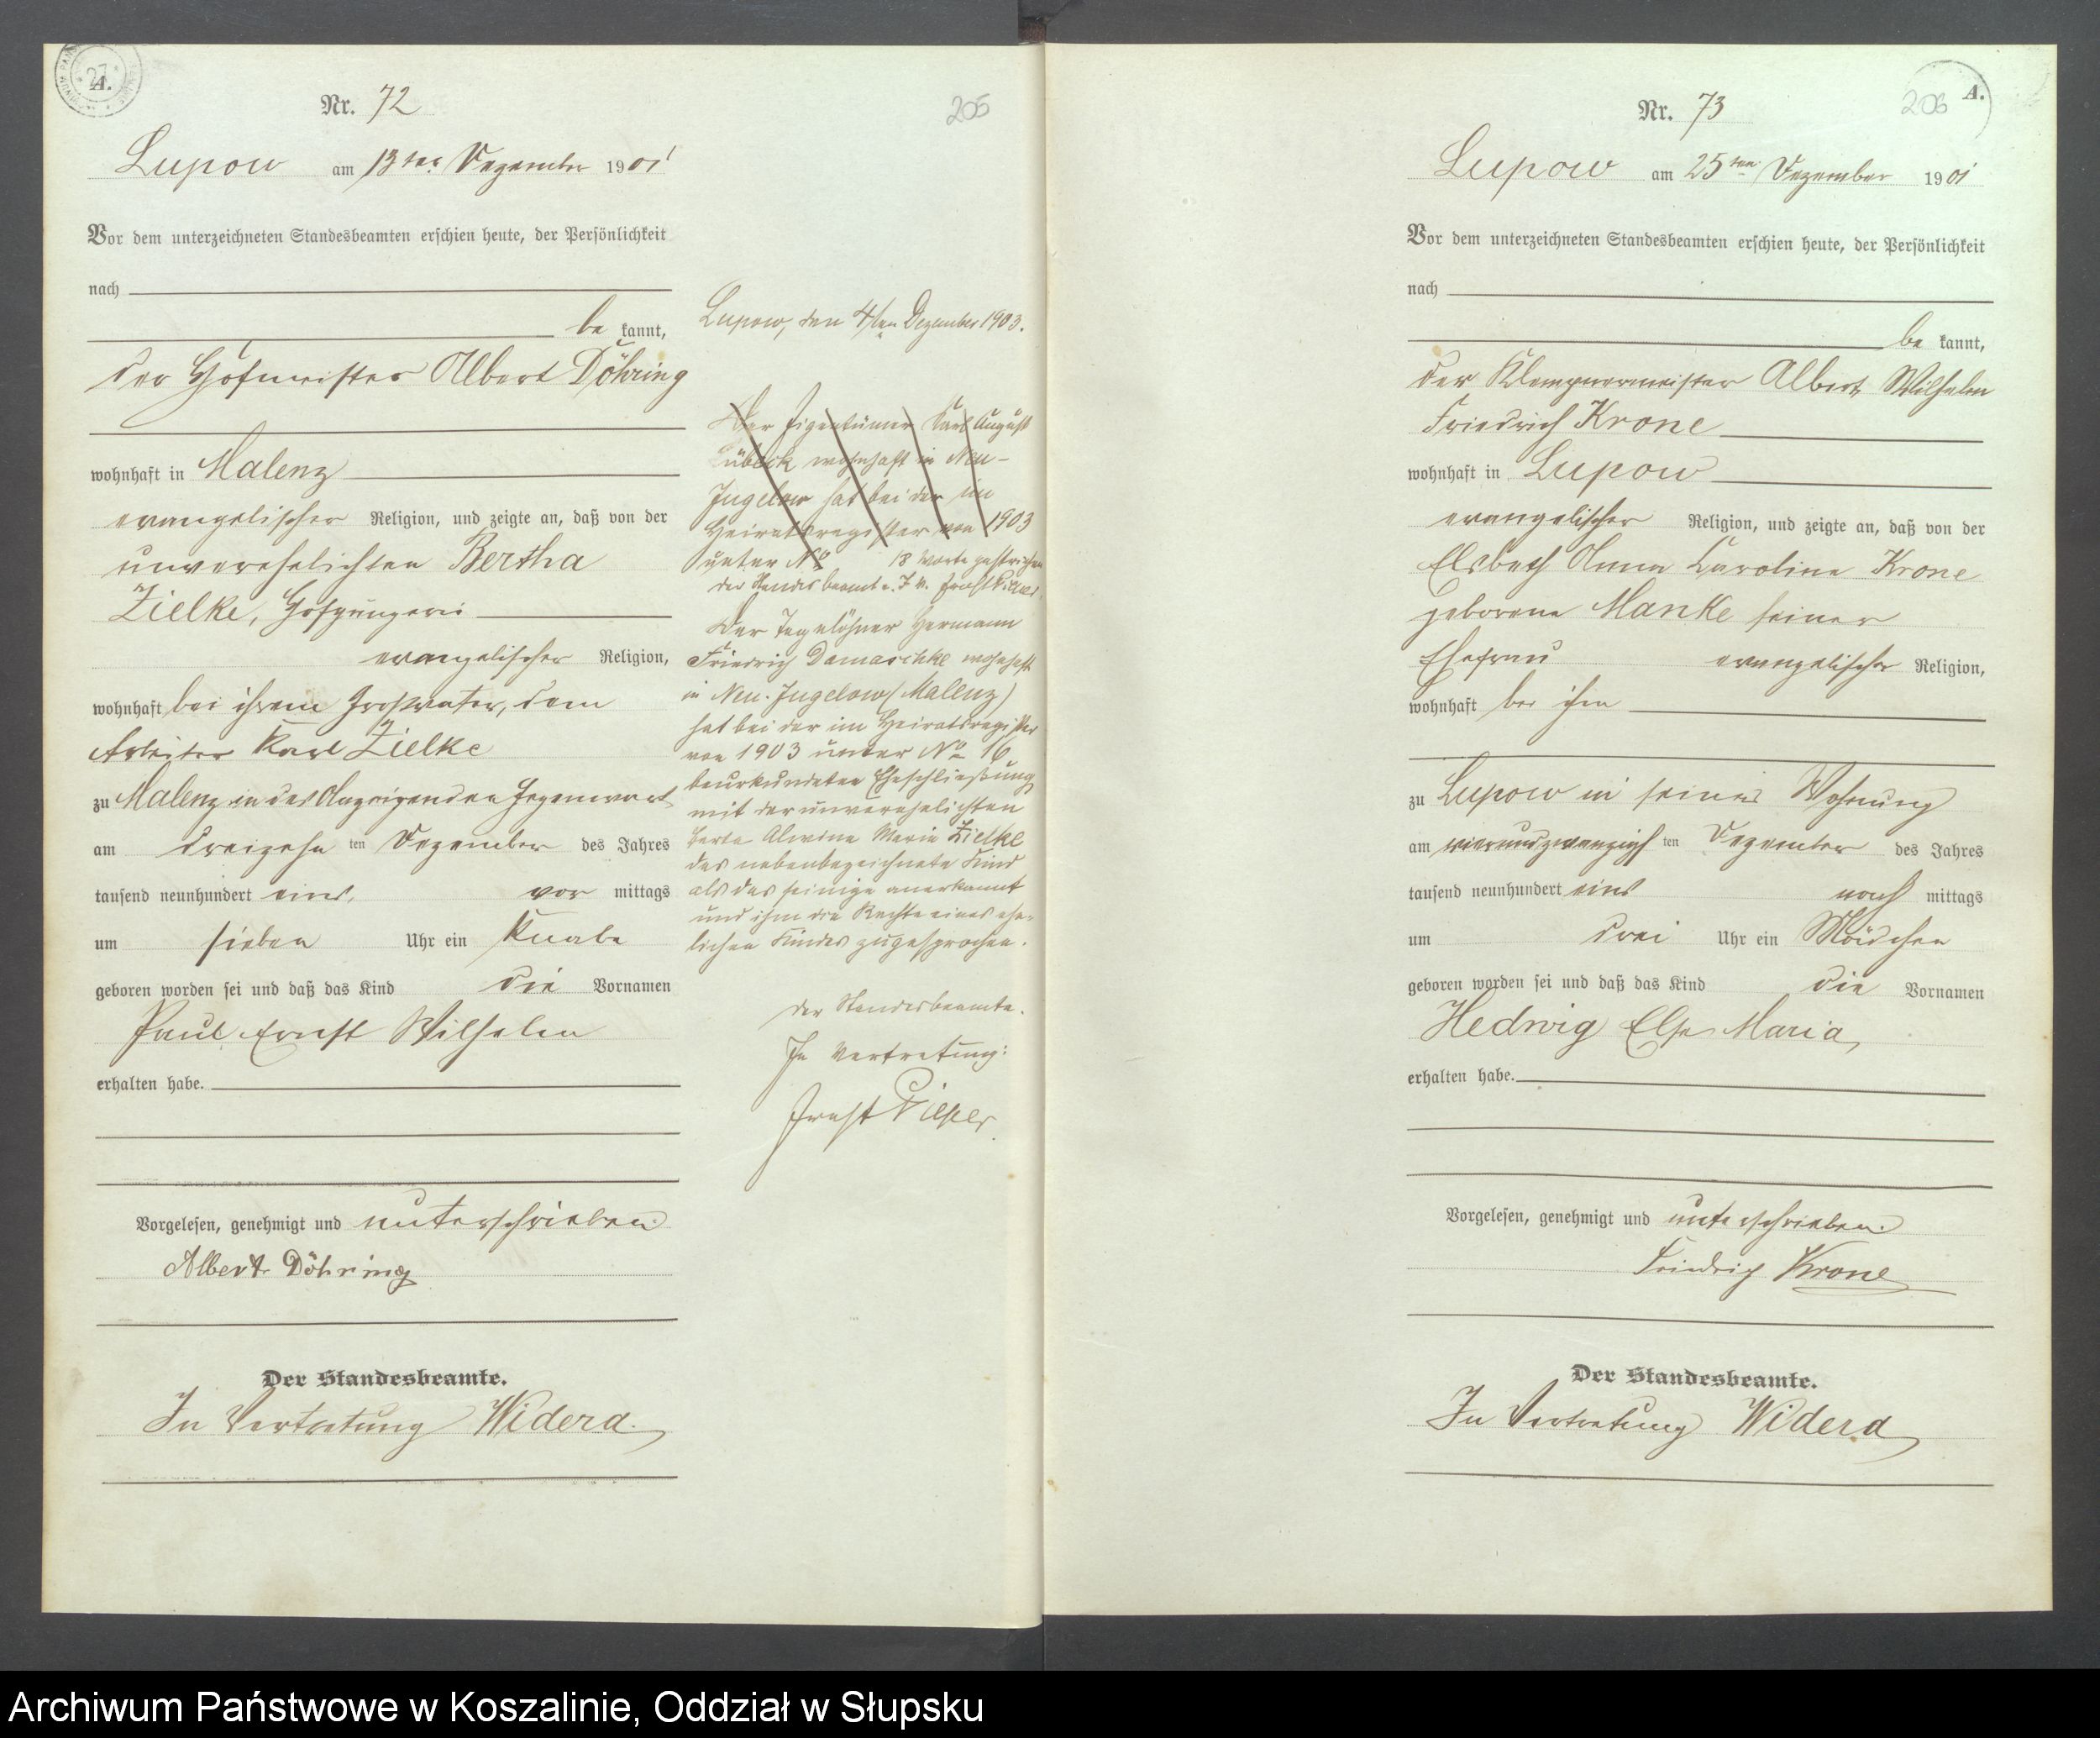 A.
Nr. 72
205
Lupow am 13ten Dezember 1901
Vor dem unterzeichneten Standesbeamten erschien heute, der Persönlichkeit
nach
be kannt,
der Hofmeister Albert Döhring
wohnhaft in Malenz
evangelischer Religion, und zeigte an, daß von der
unverehelichten Bertha
Zielke, Hofgängerin
evangelischer Religion,
wohnhaft bei ihrem Großvater, dem
Arbeiter Karl Zielke
zu Malenz in des Anzeigenden Gegenwart
am dreizehn ten Dezember des Jahres
tausend neunhundert eins, vor mittags
um sieben Uhr ein Knabe
geboren worden sei und daß das Kind die Vornamen
Paul Ernst Wilhelm
erhalten habe.
Vorgelesen, genehmigt und unterschrieben.
Albert Döhring
Der Standesbeamte.
In Vertretung Widera.
Lupow, den 4ten Dezember 1903.
Der Eigentümer Karl August
Lübeck wohnhaft in Neu-
Jugelow hat bei der im
Heiratsregister von 1903
unter No 18 Worte gestrichen
der Standesbeamte. J. V. Ernst
Der Tagelöhner Hermann
Friedrich Damaschke wohnhaft
in Neu-Jugelow (Malenz)
hat bei der im Heiratsregister
von 1903 unter No 16
beurkundeten Eheschließung
mit der unverehelichten
Berta Alwine Marie Zielke
das nebenbezeichnete Kind
als das seinige anerkannt
und ihm die Rechte eines ehe-
lichen Kindes zugesprochen.
Der Standesbeamte.
In Vertretung:
Ernst
A.
Nr. 73
206
Lupow am 25ten Dezember 1901
Vor dem unterzeichneten Standesbeamten erschien heute, der Persönlichkeit
nach
be kannt,
der Klempnermeister Albert Wilhelm
Friedrich Krone
wohnhaft in Lupow
evangelischer Religion, und zeigte an, daß von der
Elsbeth Anna Karoline Krone
geborene Manke seiner
Ehefrau evangelischer Religion,
wohnhaft bei ihm
zu Lupow in seiner Wohnung
am vierundzwanzigsten Dezember des Jahres
tausend neunhundert eins nach mittags
um drei Uhr ein Mädchen
geboren worden sei und daß das Kind die Vornamen
Hedwig Else Maria
erhalten habe.
Vorgelesen, genehmigt und unterschrieben.
Friedrich Krone
Der Standesbeamte.
In Vertretung Widera
Archiwum Państwowe w Koszalinie, Oddział w Słupsku